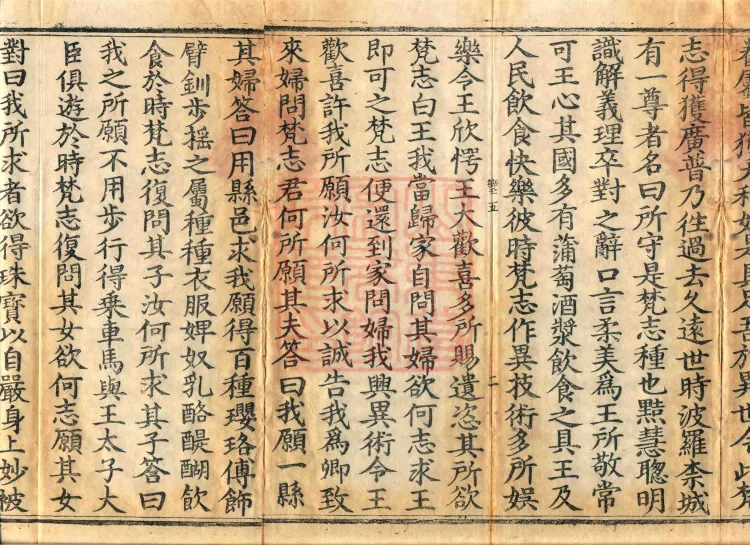 志得獲廣普乃往過去久遠世時波羅柰城
有一尊者名曰所守是梵志種也黠慧聰明
識解義理卒對之辭口言柔美爲王所敬常
可王心其國多有蒲萄酒漿飲食之具王及
人民飲食快樂彼時梵志作異技術多所娛
五 二
樂令王欣愕王大歡喜多所賜遺恣其所欲
梵志白王我當歸家自問其婦欲何志求王
即可之梵志便還到家問婦我興異術令王
歡喜許我所願汝何所求以誠告我爲卿致
來婦問梵志君何所願其夫荅曰我願一縣
其婦荅曰用縣邑求我願得百種瓔珞傅飾
臂釧步搖之屬種種衣服婢奴乳酪醍醐飲
食於時梵志復問其子汝何所求其子荅曰
我之所願不用步行得乗車馬與王太子大
臣俱遊於時梵志復問其女欲何志願其女
對曰我所求者欲得珠寶以自嚴身上妙被